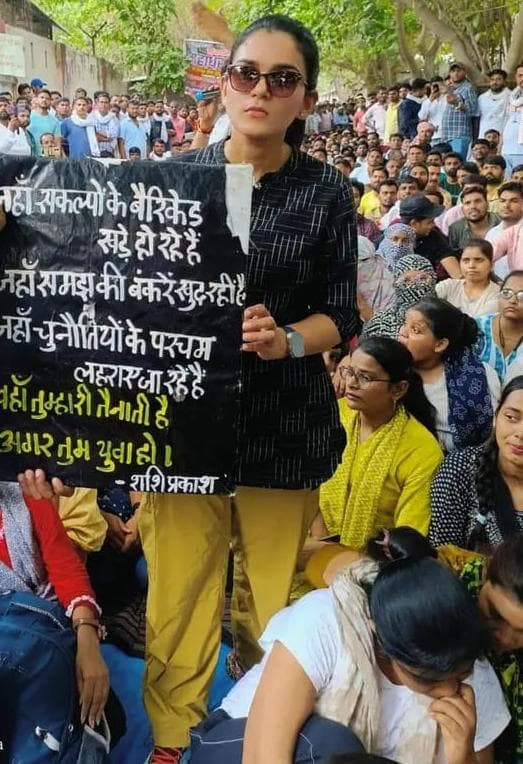 जहाँ संकल्पों के बैरिकेड
खड़े हो रहे हैं
जहाँ समझ की बंकरें खुद रही हैं
जहाँ चुनौतियों के परचम
लहराए जा रहे हैं
वहाँ तुम्हारी तैनाती है
अगर तुम युवा हो।
- शशि प्रकाश